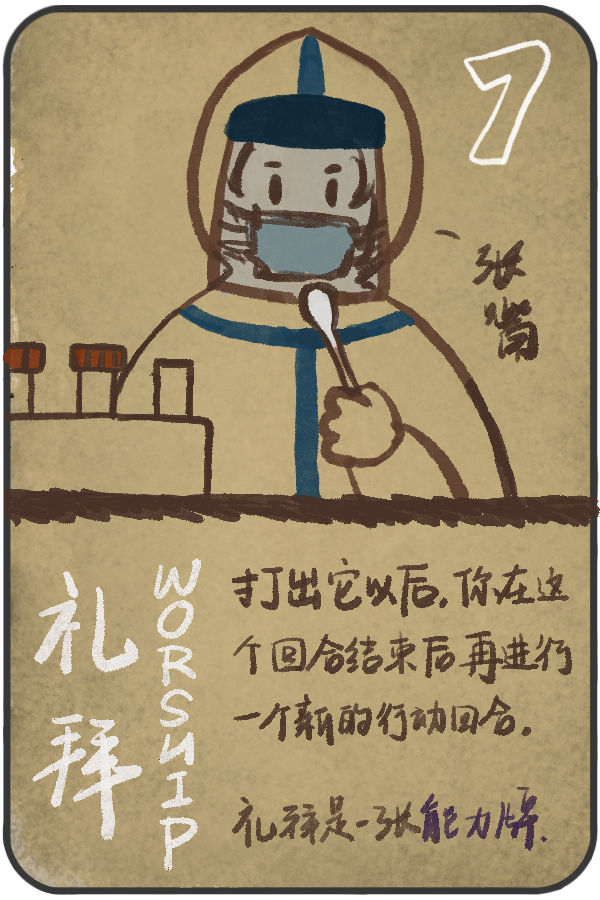 7
张嘴
礼拜
WORSHIP
打出它以后，你在这
个回合结束后再进行
一个新的行动回合。
礼拜是一张能力牌.